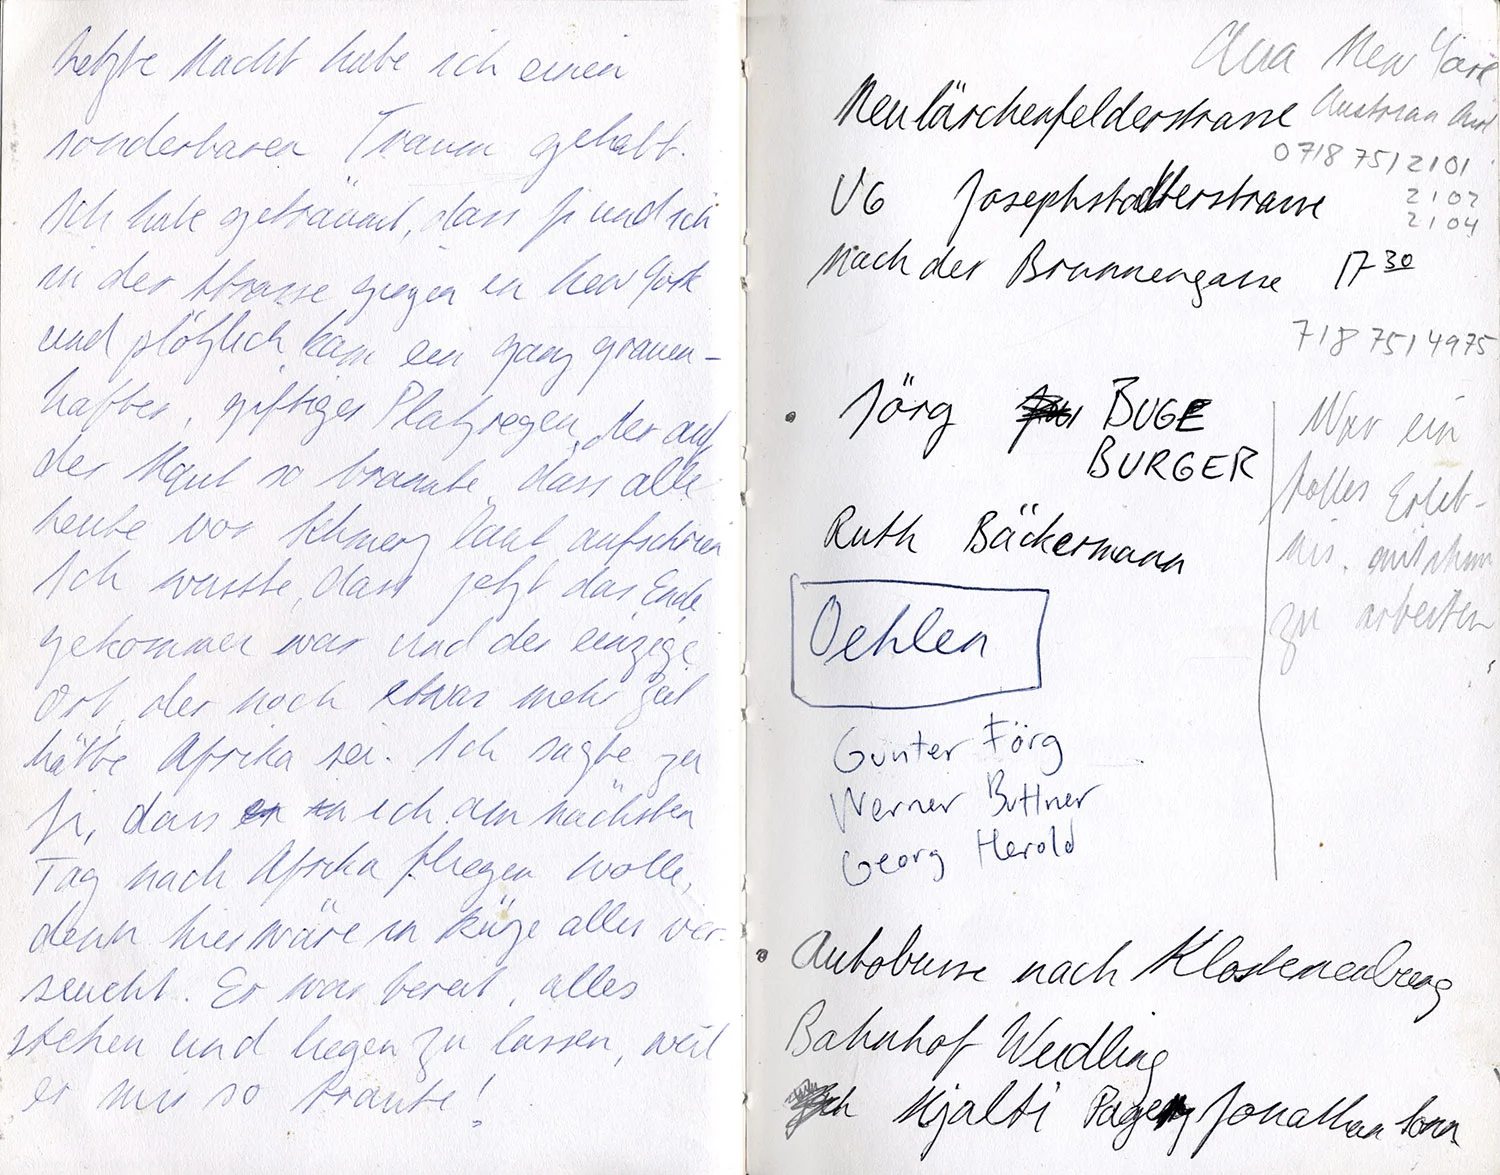 Letzte Nacht habe ich einen
sonderbaren Traum gehabt.
Ich habe geträumt, dass Ji und ich
in der Strasse gingen in New York
und plötzlich kam ein ganz grauen-
haftes, giftiges Platzregen, der auf
der Haut so brannte, dass alle
Leute vor Schmerz laut aufschrien
Ich wusste, dass jetzt das Ende
gekommen war und der einzige
Ort, der noch etwas mehr Zeit
hätte Afrika sei. Ich sagte zu
Ji, dass ich am nächsten
Tag nach Afrika fliegen wolle,
denn hier wäre in Kürze alles ver-
seucht. Er war bereit, alles
stehen und liegen zu lassen, weil
er mir so traute!
New York
Neulärchenfelderstrasse Austrian
0718 751 2101
U6 Josephstädterstrasse 2102
2104
nach der Brunnengasse 17 30
718 751 4975
Jörg BUGE
BURGER
War ein
tolles Erleb-
nis, mit ihm
zu arbeiten
Ruth Bäckermann
Oehlen
Günter Förg
Werner Büttner
Georg Herold
Autobusse nach Klosterneuburg
Bahnhof Weidling
Hjalti Jonathan